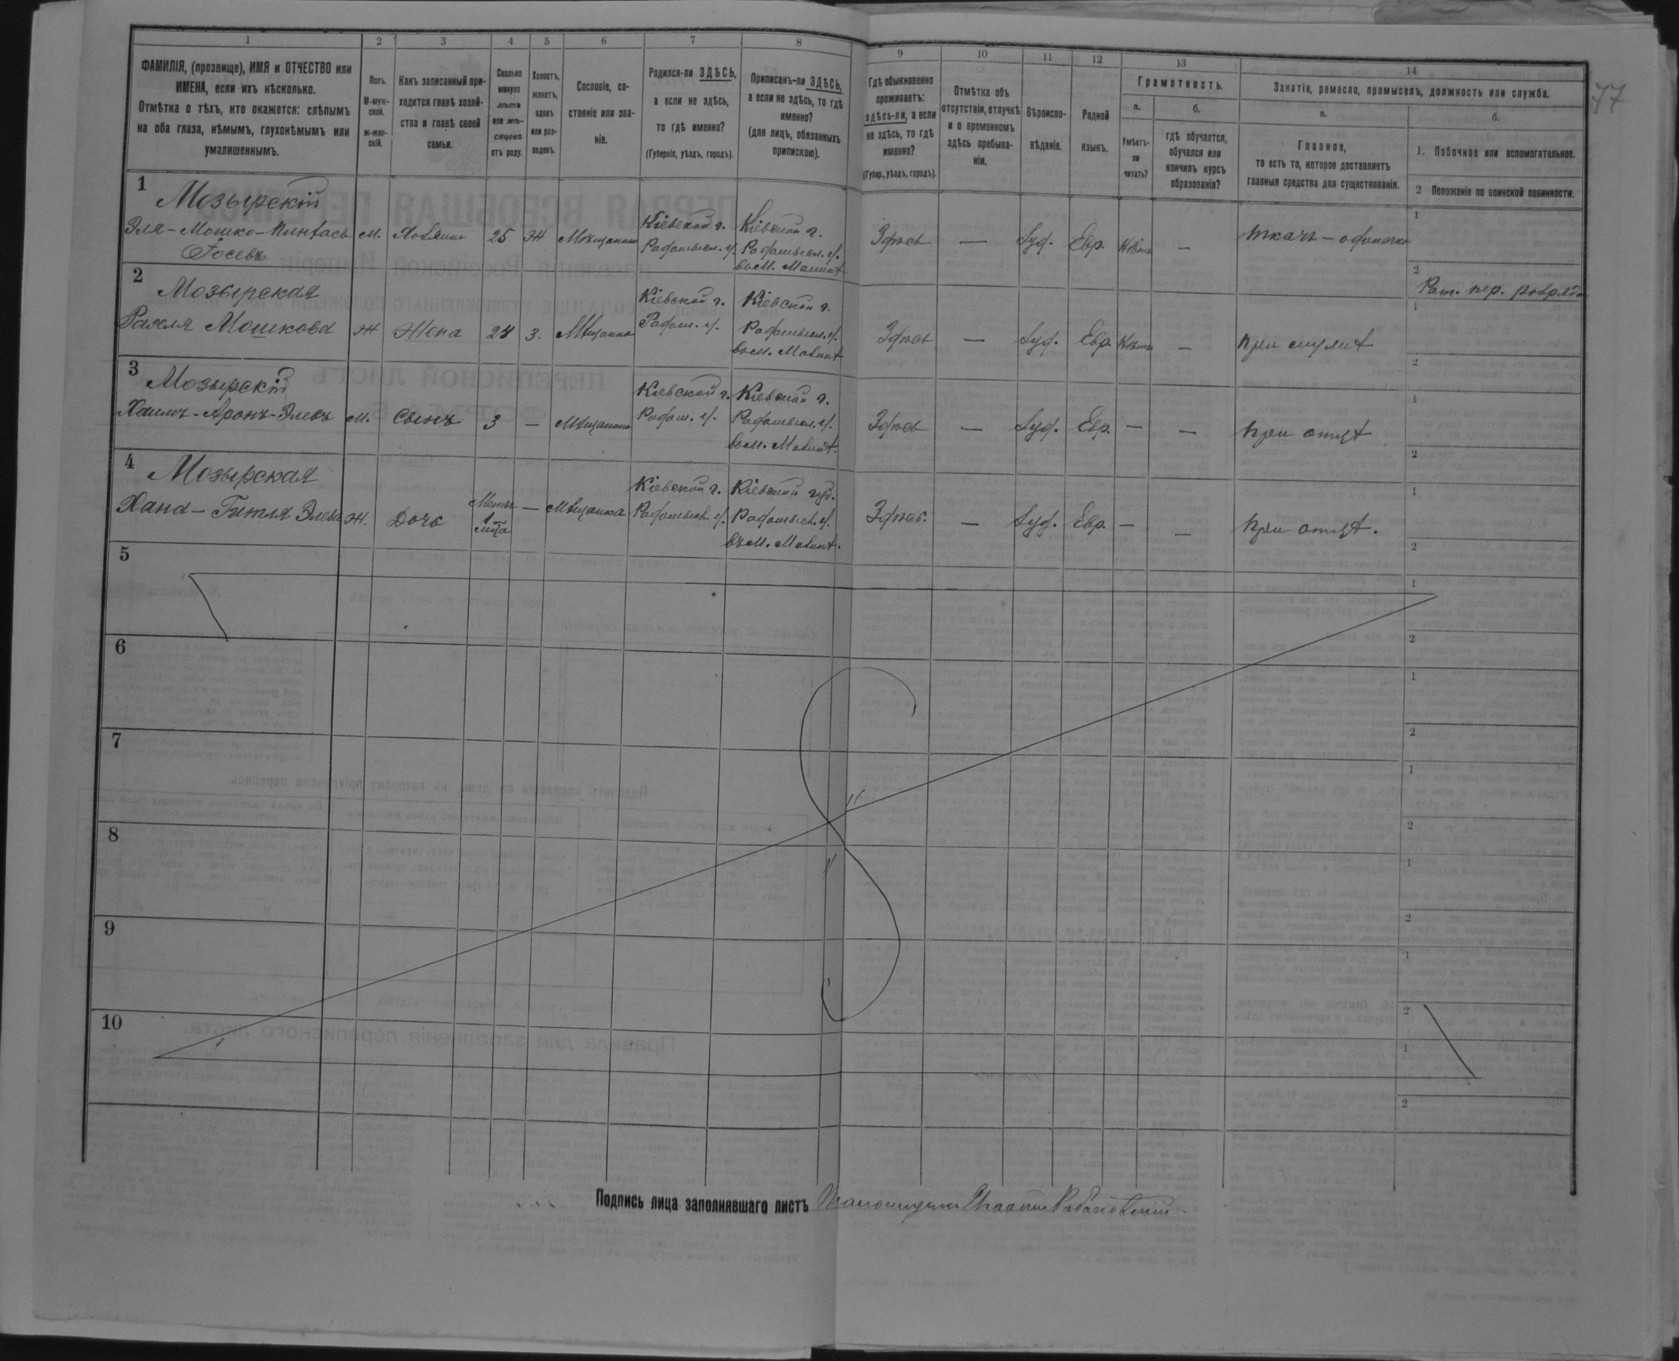 1 2 3 4 5 6 7 8 9 10 11 12 13 14
ФАМИЛІЯ, (прозвище), ИМЯ и ОТЧЕСТВО или
ИМЕНА, если ихъ нѣсколько.
Отмѣтка о тѣхъ, кто окажется: слѣпымъ
на оба глаза, нѣмымъ, глухонѣмымъ или
умалишеннымъ.
Полъ.
М-муж-
ской.
ж-жен-
скій.
Какъ записанный при-
ходится главѣ хозяй-
ства и главѣ своей
семьи.
Сколько
минуло
лѣтъ
или мѣ-
сяцевъ
отъ роду.
Холостъ,
женатъ,
вдовъ
или раз-
веденъ.
Сословіе, со-
стояніе или зва-
ніе.
Родился-ли ЗДѢСЬ,
а если не здѣсь,
то гдѣ именно?
(Губернія, уѣздъ, городъ).
Приписанъ-ли ЗДѢСЬ,
а если не здѣсь, то гдѣ
именно?
(для лицъ, обязанныхъ
припискою).
Гдѣ обыкновенно
проживаетъ:
здѣсь-ли, а если
не здѣсь, то гдѣ
именно?
(Губер., уѣздъ, городъ).
Отмѣтка объ
отсутствіи, отлучкѣ
и о временномъ
здѣсь пребыва-
ніи.
Вѣроиспо-
вѣданіе.
Родной
языкъ.
Грамотность.
а.
Умѣетъ-
ли
читать?
б.
гдѣ обучается,
обучался или
кончилъ курсъ
образованія?
Занятіе, ремесло, промыселъ, должность или служба.
а.
Главное,
то есть то, которое доставляетъ
главныя средства для существованія.
б.
1. Побочное или вспомогательное.
2 Положеніе по воинской повинности.
77
1
Мозырскій
Эля-Мошко-Пинхасъ м. Хозяинъ 25 Ж Мѣщанинъ
Іосевъ
Кіевской г.
Радомысл. у.
Кіевской г.
Радомысл. у.
въ м. Малинѣ
Здѣсь — Іуд. Евр. —
ткачъ
1
2
Рат. пер. разряда
2
Мозырская
Рахля Мошкова ж Жена 24 З. Мѣщанка
Кіевской г.
Радом. у.
Кіевской г.
Радомысл. у.
въ м. Малинѣ
Здѣсь — Іуд. Евр. —
при мужѣ
1
2
3
Мозырскій
Хаимъ-Аронъ-Элевъ м. Сынъ 3 — Мѣщанинъ
Кіевской г.
Радом. у.
Кіевской г.
Радомысл. у.
въ м. Малинѣ
Здѣсь — Іуд. Евр. — —
при отцѣ
1
2
4
Мозырская
Хана-Гитля Элева ж. Дочь — Мѣщанка
Менѣе
1
Кіевской г.
Радомысл. у.
Кіевской губ.
Радомысл. у.
въ м. Малинѣ.
Здѣсь. — Іуд. Евр. — —
при отцѣ.
1
2
5
1
2
6
1
2
7
1
2
8
1
2
9
1
2
10
1
2
Подпись лица заполнявшаго листъ